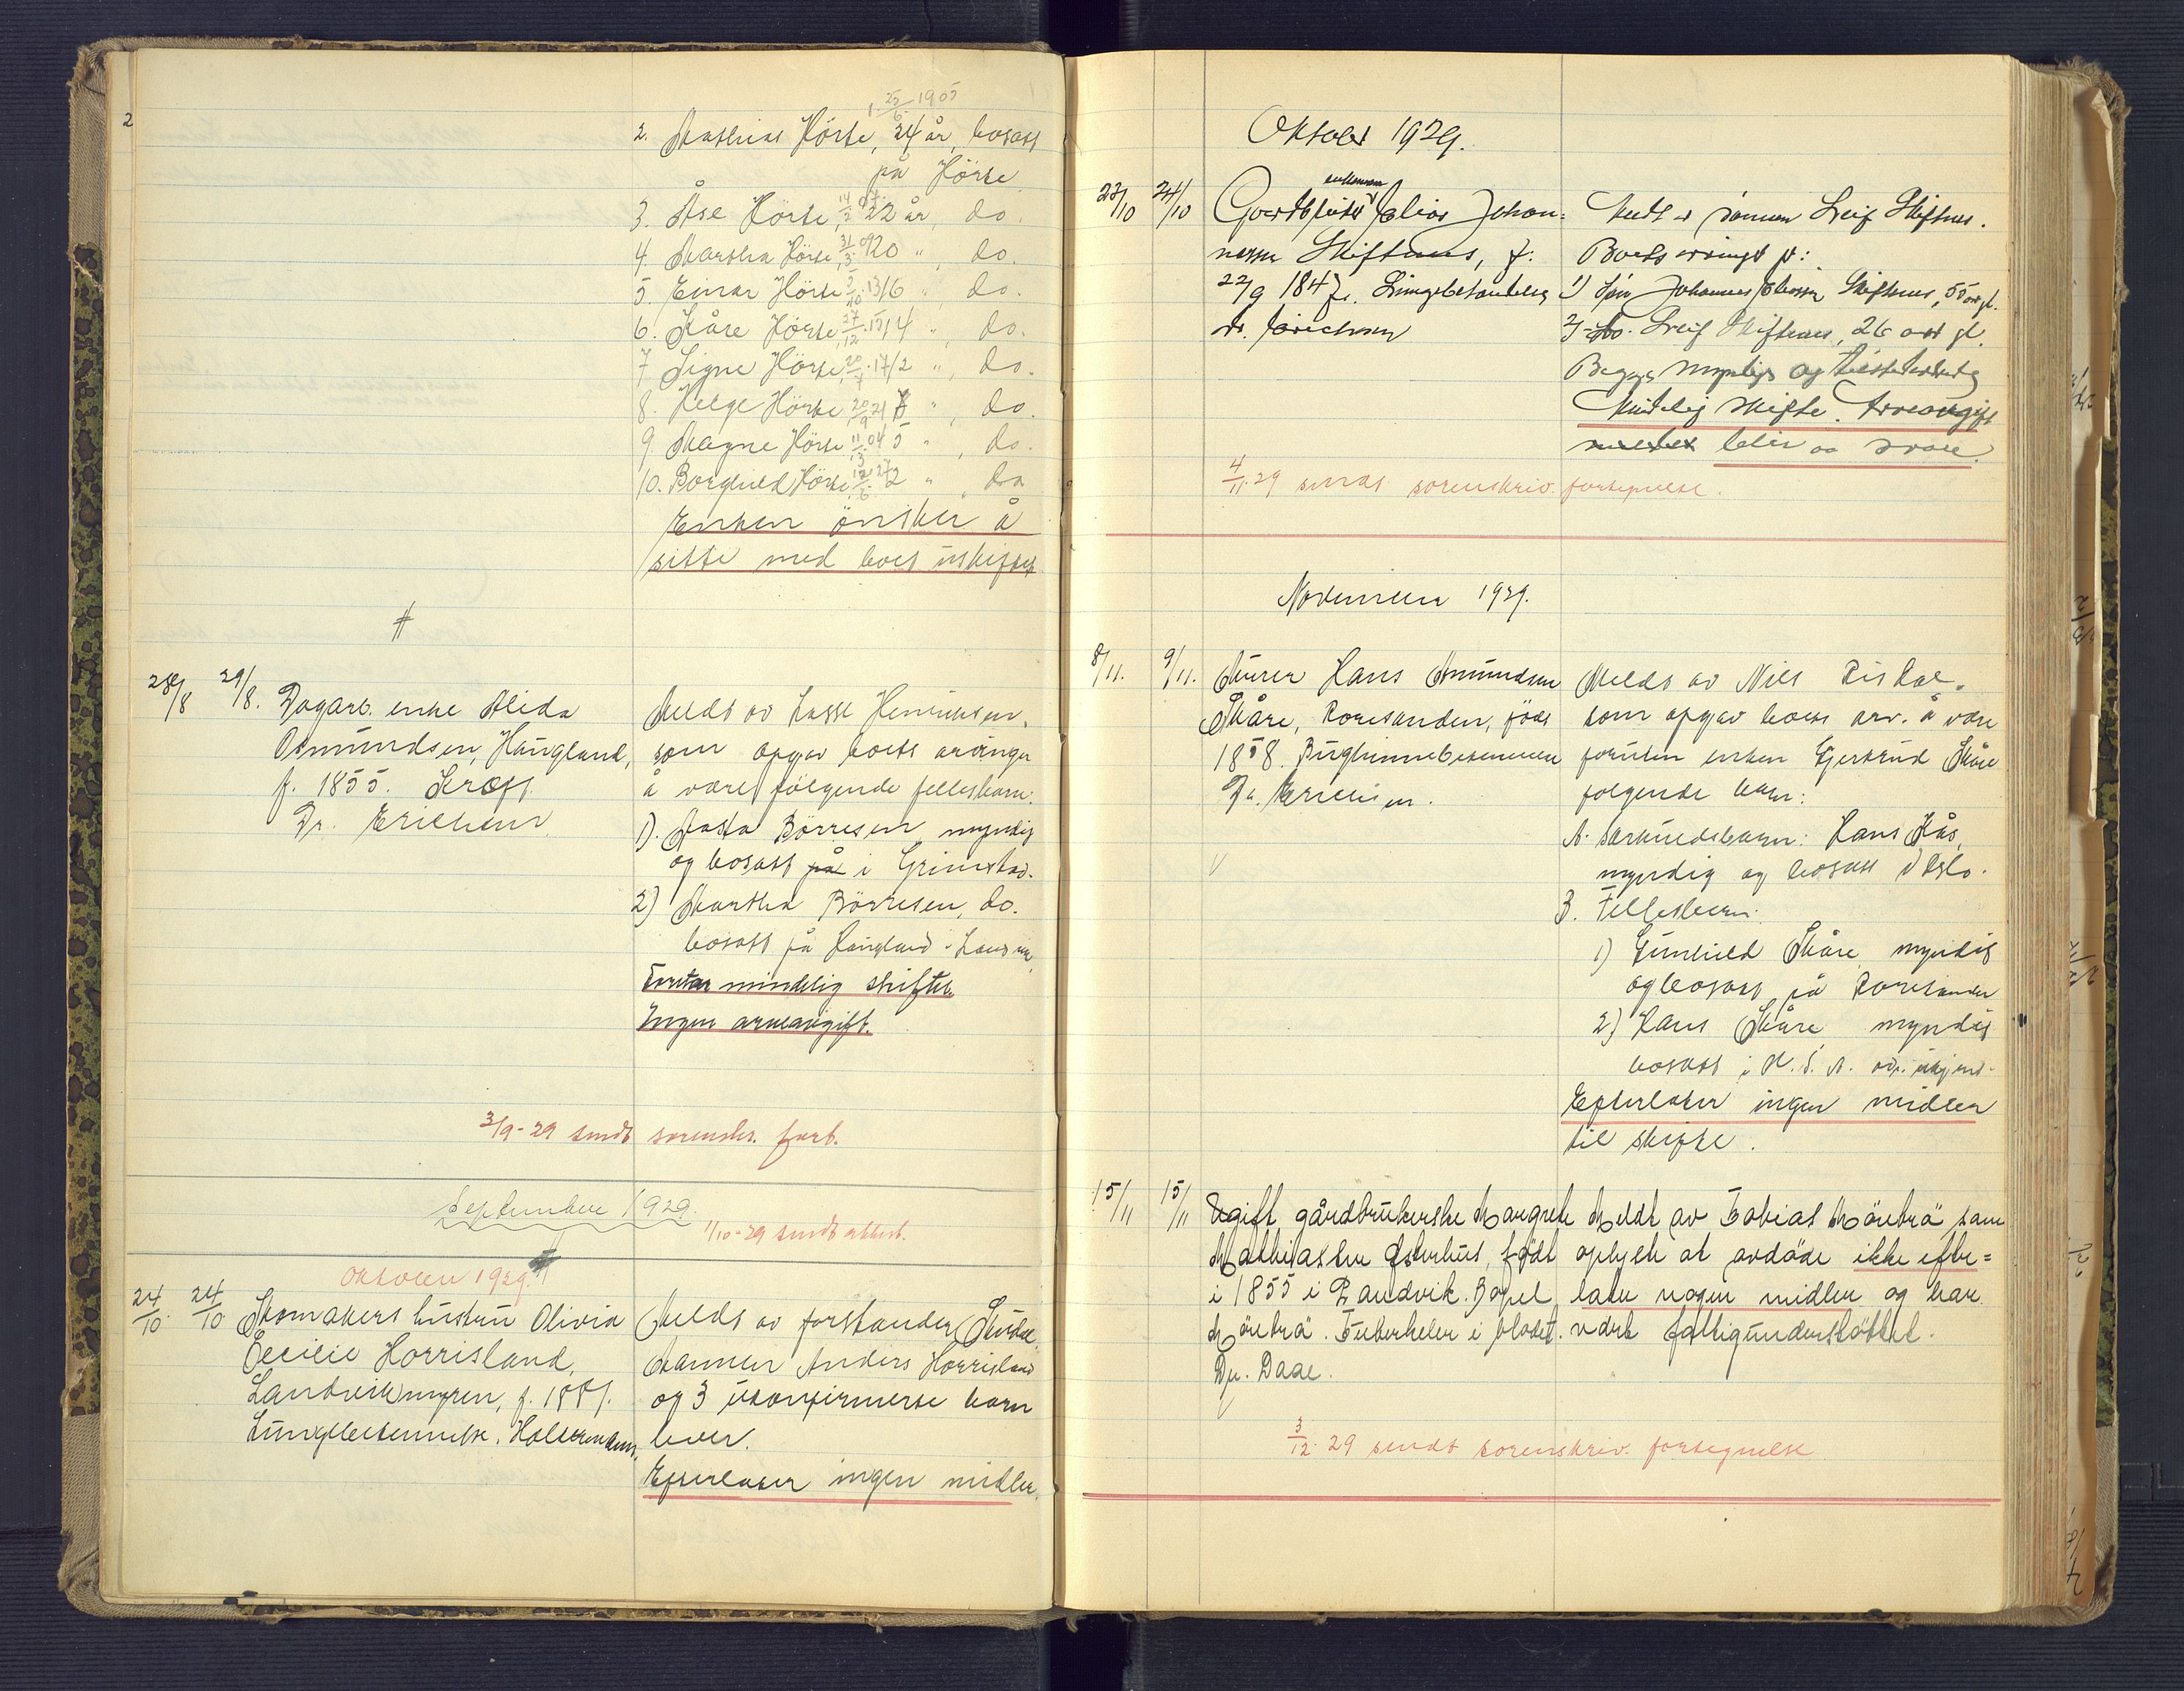 2
25/6 1905
2. Mathias Hörte, 24 år, bosatt
på Hörte
3. Åse Hörte, 14/2 07 22 år, do.
4. Martha Hörte, 31/3 09 20 " , do.
5. Einar Hörte 5/10 13 16 " do.
6. Kåre Hörte 27/12 15 14 " , do.
7 Signe Hörte, 20/7 17 12 " , do.
8. Helge Hörte 20/9 21 8 " , do.
9 Magne Hörte 11/3 5 " , do.
10. Borghild Hörte 12/6 27 2 " , do
Enken önsker å
sitte med boet uskiftet
28/8 29/8. Dagarb. enke Alida
Osmundsen, Haugland,
f. 1855. Kreft.
Dr. Erichsen.
Meldt av Lasse Henriksen,
som opgav boets arvinger
å være følgende fellesbarn:
1). Aasta Börresen, myndig
og bosatt på i Grimstad.
2) Martha Börresen, do.
bosatt på Haugland
Foretar mindelig skifte.
Ingen arveavgift.
3/9-29 sendt sorenskr. fort.
September 1929.
1/10-29 sendt attest.
Oktober 1929.
24/10. 24/10 Skomakers hustru Olivia
Cecilie Horrisland,
Landvikmyren, f. 188
Lungebetennelse. Holtermann.
Meldt av forstander
Mannen Anders Horrisland
og 3 ukonfirmerte barn
lever.
Efterlater ingen midler.
Oktober 1929.
23/10 24/10 Gårdbruker enkemann Johan-
nessen Skiftenes, f.
22/9 1847. Lungebetændelse
dr. Erichsen
Meldt av sönnen Leif Skiftenes.
Boets arvinger er:
1) Sön Johannes Skiftenes, 55 år gl.
2) do. Leif Skiftenes, 26 år gl.
Begge myndige og tilstedeværende
Mindelig skifte. Arveavgift
blir å svare.
4/11. 29 sendt sorenskriv. fortegnelse.
November 1929.
8/11. 9/11. Murer Hans Amundsen
Skåre, Roresanden, född
1858. Brysthinnebetennelse
Dr. Erichsen.
Meldt av Nils
som opgav boets arv. å være
foruten enken Gjertrud Skåre
følgende barn:
A. Særkuldsbarn: Hans Kås,
myndig og bosatt i Oslo.
B. Fellesbarn:
1) Gunhild Skåre, myndig
og bosatt på Roresanden
2) Hans Skåre, myndig
bosatt i U.S.A. adr. ukjent.
Efterlater ingen midler
til skifte.
15/11 15/11 Ugift gårdbrukerske Margrete
Mathiasen Osterhus, født
i 1855 i Landvik. Bopel
Mörebrö. Tuberkeler i blodet.
Dr. Daae.
Meldt av Tobias Mörebrö, som
oplyste at avdöde ikke efter=
later nogen midler og har
vært fattigunderstöttet.
3/12. 29 sendt sorenskriv. fortegnelse